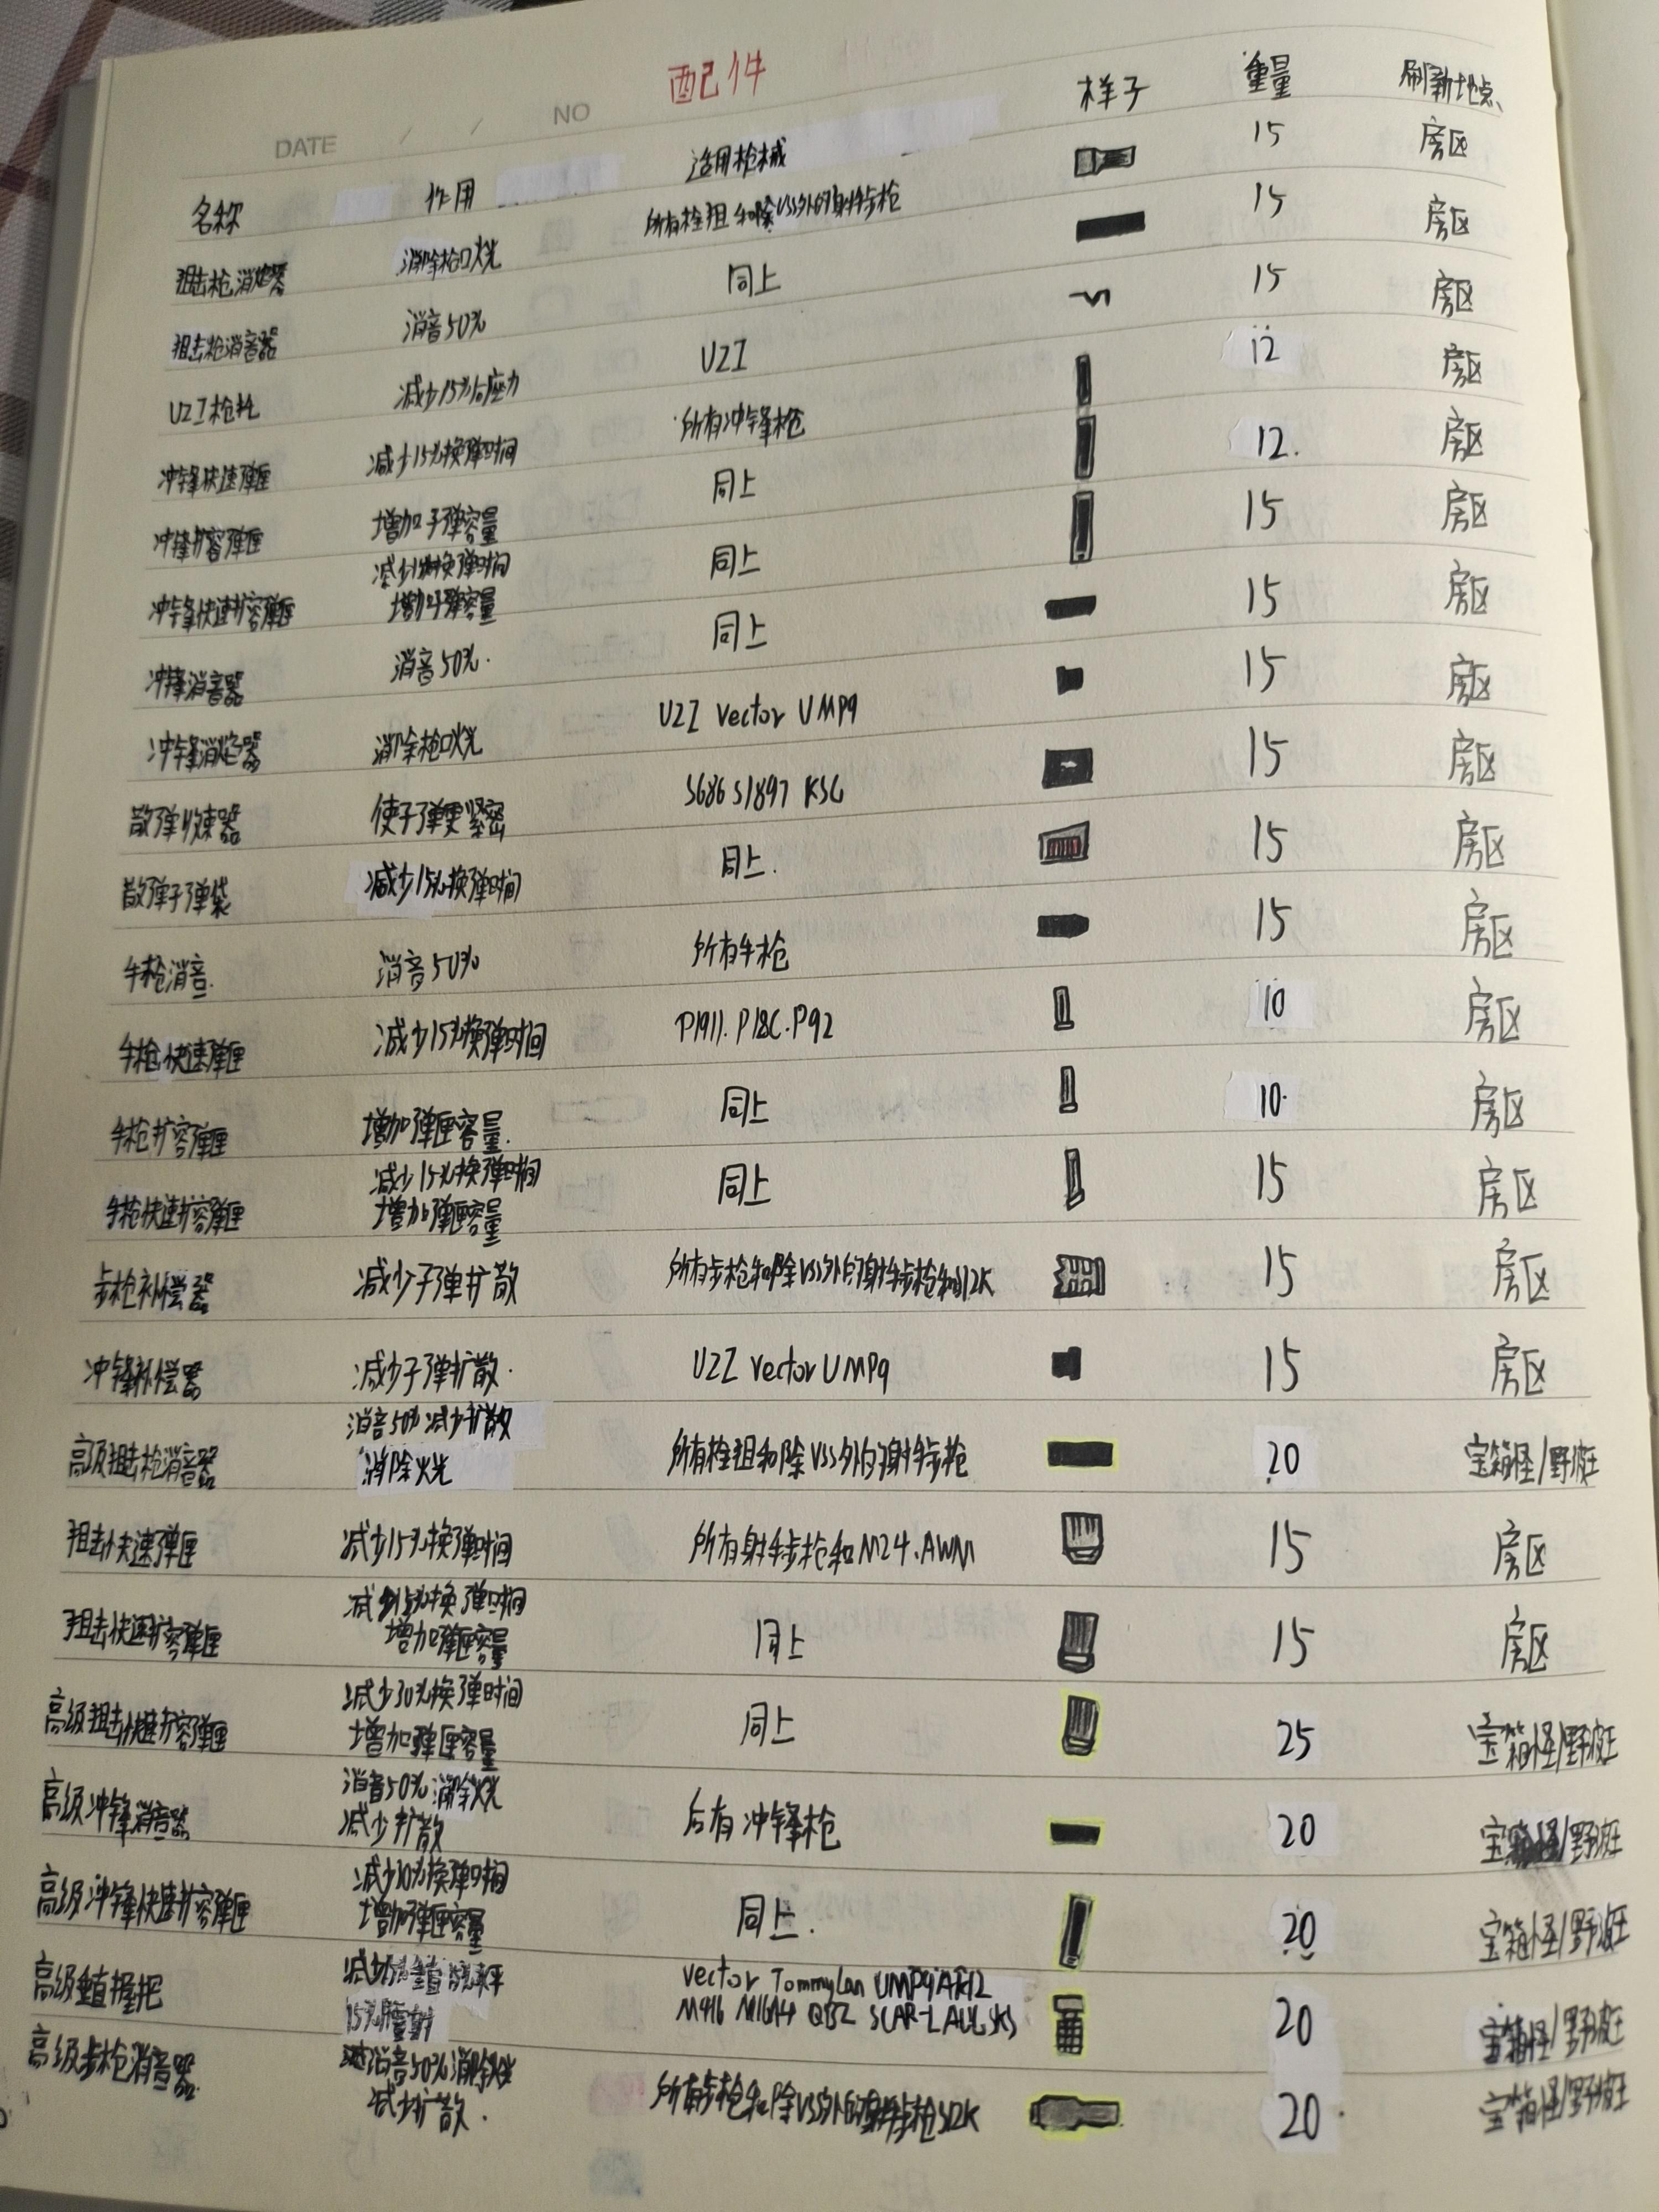 配件
DATE / / NO
名称 作用 适用枪械 样子 重量 刷新地点
狙击枪消焰器 消除枪口火光 所有栓狙和除VSS外的射手步枪 15 房区
狙击枪消音器 消音50% 同上 15 房区
UZI枪托 减少15%后座力 UZI 15 房区
冲锋快速弹匣 减少15%换弹时间 所有冲锋枪 12 房区
冲锋扩容弹匣 增加子弹容量 同上 12. 房区
冲锋快速扩容弹匣 减少15%换弹时间 增加子弹容量 同上 15 房区
冲锋消音器 消音50%. 同上 15 房区
冲锋消焰器 消除枪口火光 UZI Vector UMP9 15 房区
散弹收束器 使子弹更紧密 S686 S1897 KSG 15 房区
散弹子弹袋 减少15%换弹时间 同上. 15 房区
手枪消音. 消音50% 所有手枪 15 房区
手枪快速弹匣 减少15%换弹时间 P1911.P18C.P92 10 房区
手枪扩容弹匣 增加弹匣容量. 同上 10. 房区
手枪快速扩容弹匣 减少15%换弹时间 增加弹匣容量 同上 15 房区
步枪补偿器 减少子弹扩散 所有步枪和除VSS外的射手步枪和S12K 15 房区
冲锋补偿器 减少子弹扩散. UZI Vector UMP9 15 房区
高级狙击枪消音器 消音50%减少扩散 消除火光 所有栓狙和除VSS外的射手步枪 20 宝箱怪/野泷
狙击快速弹匣 减少15%换弹时间 所有射手步枪和M24.AWM 15 房区
狙击快速扩容弹匣 减少15%换弹时间 增加弹匣容量 同上 15 房区
高级狙击快速扩容弹匣 减少30%换弹时间 增加弹匣容量 同上 25 宝箱怪/野
高级冲锋消音器 消音50%消除火光 减少扩散 所有冲锋枪 20 宝箱怪/野
高级冲锋快速扩容弹匣 减少30%换弹时间 增加弹匣容量 同上. 20 宝箱怪/野
高级垂直握把 减少 垂直 水平 15%腰射 Vector TommyGan UMP9 M416 M16A4 QBZ SCAR-L AUG SKS 20 宝箱怪/野
高级步枪消音器. 消音50%消除火光 减少扩散. 所有步枪和除VSS外的射手步枪S12K 20 宝箱怪/野